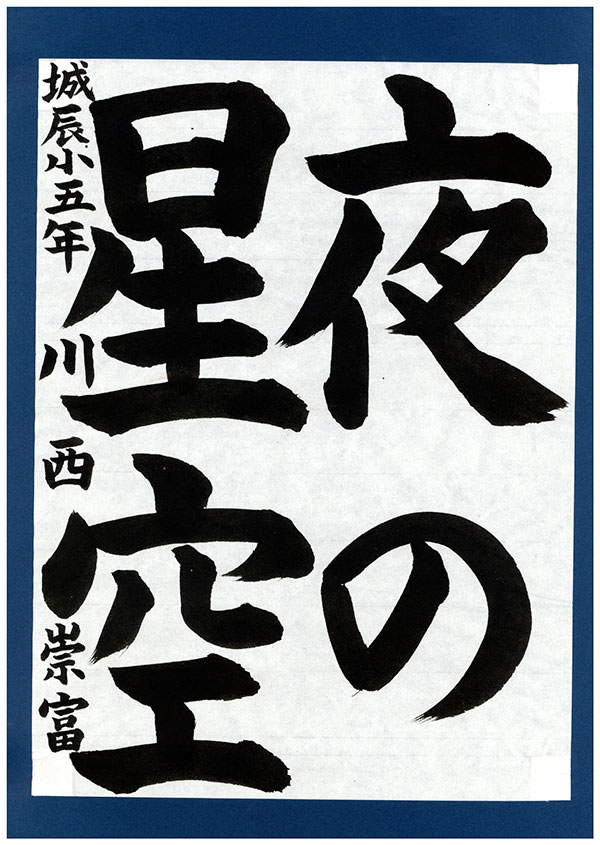 夜の
星空
城辰小五年 川西崇富